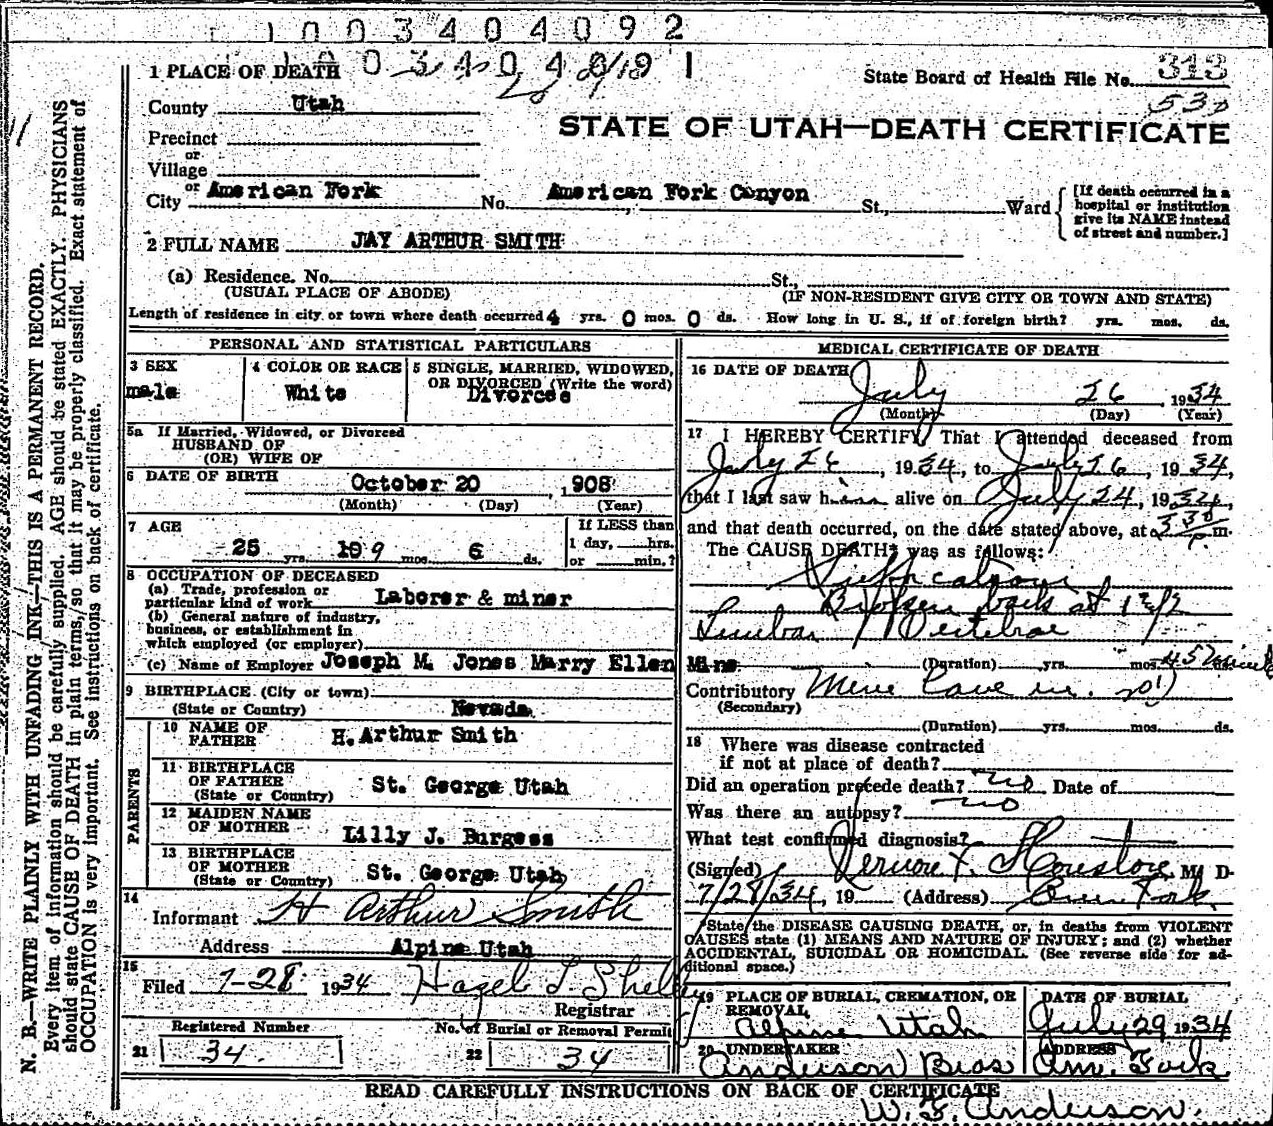 1 0 0 3 4 0 4 0 9 2
1 PLACE OF DEATH
State Board of Health File No. 313
530
County Utah
STATE OF UTAH—DEATH CERTIFICATE
Precinct
or
Village
or
City American Fork No. American Fork Canyon St., Ward
[If death occurred in a hospital or institution give its NAME instead of street and number.]
2 FULL NAME JAY ARTHUR SMITH
(a) Residence. No. St.,
(USUAL PLACE OF ABODE) (IF NON-RESIDENT GIVE CITY OR TOWN AND STATE)
Length of residence in city or town where death occurred 4 yrs. 0 mos. 0 ds. How long in U. S., if of foreign birth? yrs. mos. ds.
PERSONAL AND STATISTICAL PARTICULARS
3 SEX male
4 COLOR OR RACE White
5 SINGLE, MARRIED, WIDOWED, OR DIVORCED (Write the word) Divorcee
5a If Married, Widowed, or Divorced
HUSBAND OF
(OR) WIFE OF
6 DATE OF BIRTH October 20, 1908
(Month) (Day) (Year)
7 AGE 25 yrs. 10 9 mos. 6 ds.
If LESS than
1 day, hrs.
or min.?
8 OCCUPATION OF DECEASED
(a) Trade, profession or
particular kind of work Laborer & miner
(b) General nature of industry,
business, or establishment in
which employed (or employer)
(c) Name of Employer Joseph M. Jones Marry Ellen Mine
9 BIRTHPLACE (City or town)
(State or Country) Nevada
PARENTS
10 NAME OF
FATHER H. Arthur Smith
11 BIRTHPLACE
OF FATHER
(State or Country) St. George Utah
12 MAIDEN NAME
OF MOTHER Lilly J. Burgess
13 BIRTHPLACE
OF MOTHER
(State or Country) St. George Utah
14
Informant H Arthur Smith
Address Alpine Utah
15
Filed 7-28 1934 Hazel L. Shelley
Registrar
Registered Number
21 34.
No. of Burial or Removal Permit
22 34
MEDICAL CERTIFICATE OF DEATH
16 DATE OF DEATH
July 26 1934
(Month) (Day) (Year)
17 I HEREBY CERTIFY, That I attended deceased from
July 26, 1934, to July 26, 1934,
that I last saw him alive on July 24, 1934,
and that death occurred, on the date stated above, at 3:30 P m.
The CAUSE DEATH* was as follows:
Suffocation
Broken back at 1 & 2
Lumbar Vertebrae
(Duration) yrs. mos. 45 minutes
Contributory Mine Cave in.
(Secondary)
(Duration) yrs. mos. ds.
18 Where was disease contracted
if not at place of death?
Did an operation precede death? no Date of
Was there an autopsy? no
What test confirmed diagnosis?
(Signed) Vernon F. Houston, M D-
7/28/34, 19 (Address) Am Fork.
*State the DISEASE CAUSING DEATH, or, in deaths from VIOLENT
CAUSES state (1) MEANS AND NATURE OF INJURY; and (2) whether
ACCIDENTAL, SUICIDAL OR HOMICIDAL. (See reverse side for additional space.)
19 PLACE OF BURIAL, CREMATION, OR
REMOVAL
Alpine Utah
DATE OF BURIAL
July 29 1934
20 UNDERTAKER
Anderson Bros
ADDRESS
Am. Fork.
READ CAREFULLY INSTRUCTIONS ON BACK OF CERTIFICATE
W. E. Anderson.
N. B.—WRITE PLAINLY WITH UNFADING INK—THIS IS A PERMANENT RECORD.
Every item of information should be carefully supplied. AGE should be stated EXACTLY. PHYSICIANS
should state CAUSE OF DEATH in plain terms, so that it may be properly classified. Exact statement of
OCCUPATION is very important. See instructions on back of certificate.